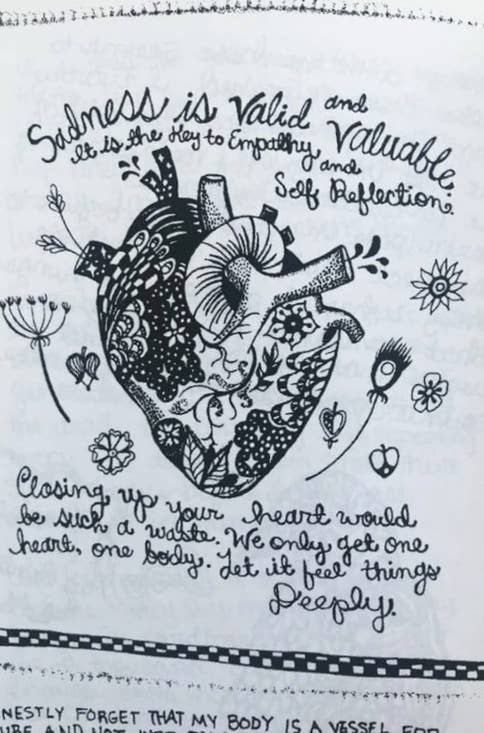 Sadness is Valid and Valuable.
It is the Key to Empathy and
Self Reflection.
Closing up your heart would
be such a waste. We only get one
heart, one body. Let it feel things
Deeply.
NESTLY FORGET THAT MY BODY IS A VESSEL FOR
AND NOT